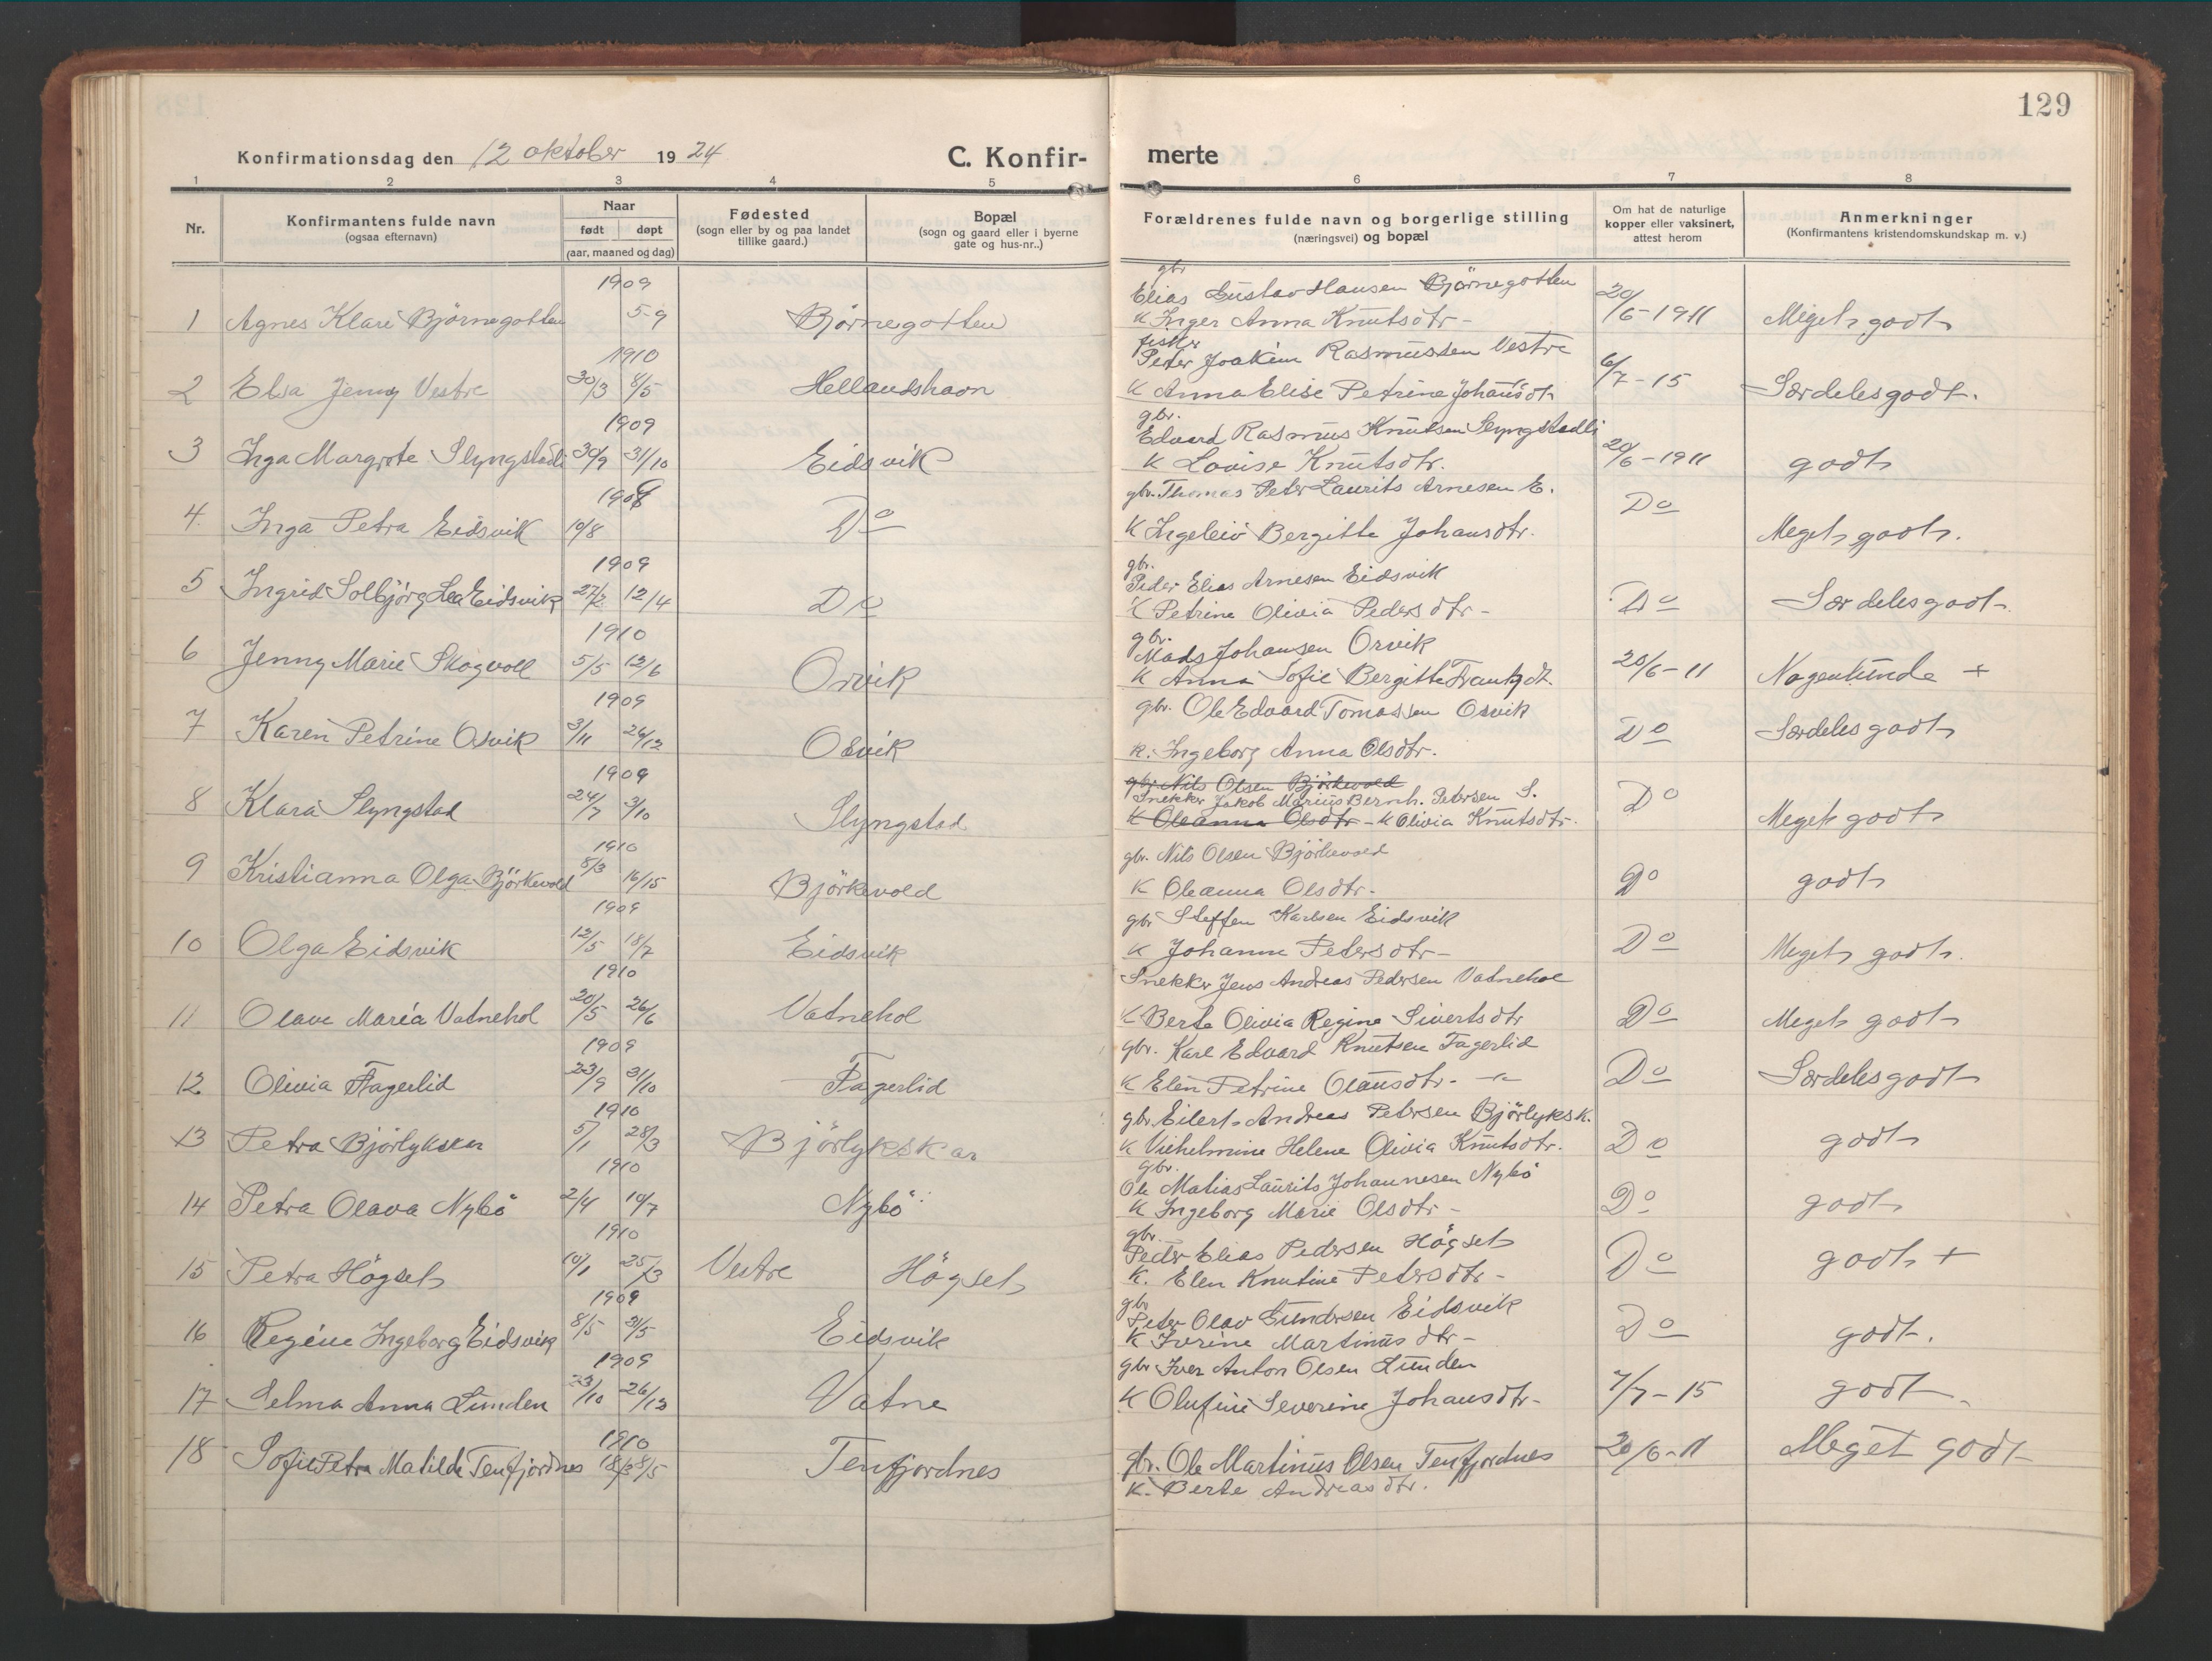 129
Konfirmationsdag den 12 oktober 1924
C. Konfir-
merte
1 2 3 4 5 6 7 8
Nr.
Konfirmantens fulde navn
(ogsaa efternavn)
Naar
født døpt
(aar, maaned og dag)
Fødested
(sogn eller by og paa landet
tillike gaard.)
Bopæl
(sogn og gaard eller i byerne
gate og hus-nr..)
Forældrenes fulde navn og borgerlige stilling
(næringsvei) og bopæl
Om hat de naturlige
kopper eller vaksinert,
attest herom
Anmerkninger
(Konfirmantens kristendomskundskap m. v.)
1909 gbr
Elias Gustav Hansen Bjørnegotten
1 Agnes Klare Bjørnegotten 5-9 Bjørnegotten 20/6-1911 Meget godt
K Inger Anna Knutsdtr-
1910 fisker
Peder Joakim Rasmussen Vestre
2 Elsa Jenny Vestre 30/3 8/5 Hellandshavn 6/7-15 Særdelesgodt.
K Anna Elise Petrine Johansdt
1909 gbr.
Edvard Rasmus Knutsen Slyngstadli
3 Inga Margrete Slyngstadli 30/9 31/10 Eidsvik 20/6-1911 godt
K Lovise Knutsdtr.
1909 gbr. Thomas Peter Laurits Arnesen E.
4. Inga Petra Eidsvik 19/8 Do Do Meget godt.
K Ingeleiv Bergitte Johansdtr.
1909 gbr.
Peder Elias Arnesen Eidsvik
5 Ingrid Solbjörg Lea Eidsvik 27/2 12/4 Do Do Særdelesgodt
K Petrine Olivia Pedersdtr-
1910 gbr.
Mads Johansen Orvik
6 Jenny Marie Skogvoll 5/5 12/6 Orvik 20/6-11 Nogenlunde +
K Anna Sofie Bergitte Frantzdt.
1909 gbr. Ole Edvard Tomassen Osvik
7 Karen Petrine Osvik 3/11 26/12 Osvik Do Særdeles godt
K. Ingeborg Anna Olsdtr.
1909 gbr. Nils Olsen Björkevold
Snekker Jakob Marius Bernh. Petersen S.
8 Klara Slyngstad 24/7 3/10 Slyngstad Do Meget godt
K Oleanna Olsdtr - K Olivia Knutsdtr.
1910 gbr. Nils Olsen Björkevold
9 Kristianna Olga Björkevold 8/3 16/15 Björkevold Do godt
K Oleanna Olsdtr.
1909 gbr Steffen Karlsen Eidsvik
10 Olga Eidsvik 12/5 18/7 Eidsvik Do Meget godt.
K Johanne Petersdtr-
1910 Snekker Jens Andreas Pedersen Vatnehol
11 Olave Maria Vatnehol 20/5 26/6 Vatnehol Do Meget godt
K Berte Olivia Regine Sivertsdtr
1909 gbr. Karl Edvard Knutsen Fagerlid
12 Olivia Fagerlid 23/9 31/10 Fagerlid Do Særdelesgodt
K Elen Petrine Olausdtr-
1910 gbr. Eilert Andreas Petersen Björlyksk.
13 Petra Björlykskar 5/1 28/3 Björlykskar Do godt
K Vielhelmine Helene Olivia Knutsdtr.
1910 gbr.
Ole Matias Laurits Johannesen Nybö
14 Petra Olava Nybö 2/4 10/7 Nybö Do godt
K Ingeborg Marie Olsdtr-
1910 gbr.
Peder Elias Pedersen Högset
15 Petra Högset 10/1 25/3 Vestre Högset Do godt +
K. Elen Knutine Petersdtr-
1909 gbr
Peter Olav Gundersen Eidsvik
16 Regine Ingeborg Eidsvik 8/5 31/5 Eidsvik Do godt.
K Iverine Martinusdtr-
1909 gbr Iver Anton Olsen Lunden
17 Selma Anna Lunden 23/10 26/12 Vatne 7/7-15 godt
K Olufine Severine Johansdtr-
1910
18 Sofie Petra Matilde Tenfjordnes 18/3 8/5 Tenfjordnes gbr. Ole Martinus Olsen Tenfjordnes 20/6-11 Meget godt
K. Berte Andreasdtr.